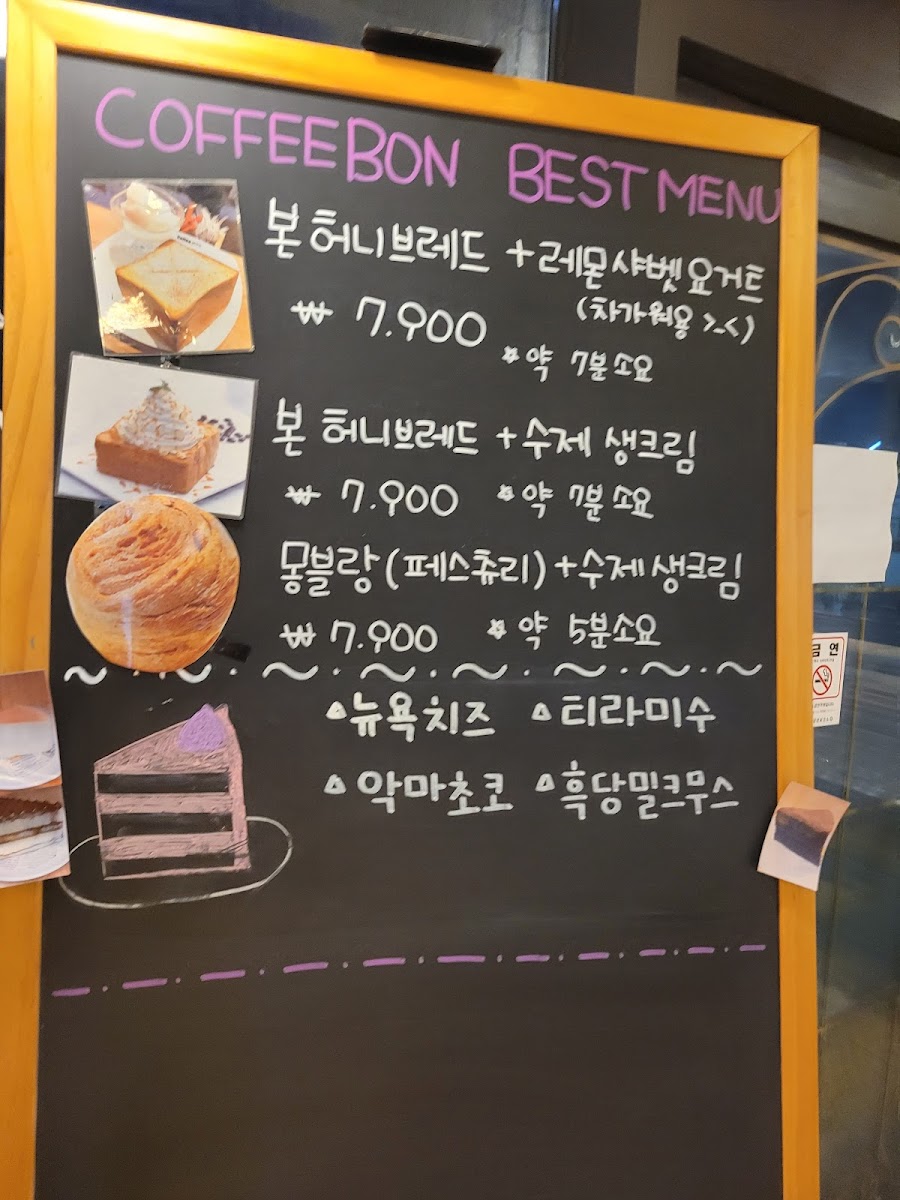 COFFEEBON BEST MENU
본 허니브레드 +레몬샤벳요거트
(차가워용 >_<)
₩ 7.900
*약 7분소요
본 허니브레드 +수제 생크림
₩ 7.900 *약 7분소요
몽블랑(페스츄리)+수제생크림
₩ 7.900 *약 5분소요
뉴욕치즈 티라미수
악마초코 흑당밀크무스
금연